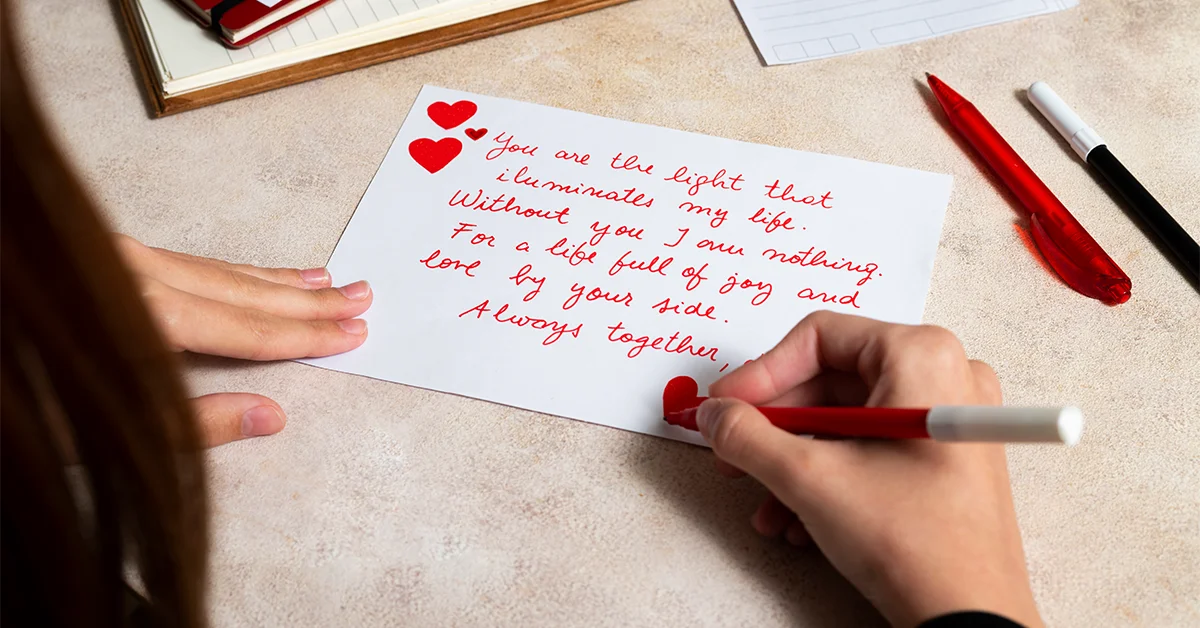 You are the light that
iluminates my life.
Without you I am nothing.
For a life full of joy and
love by your side.
Always together,